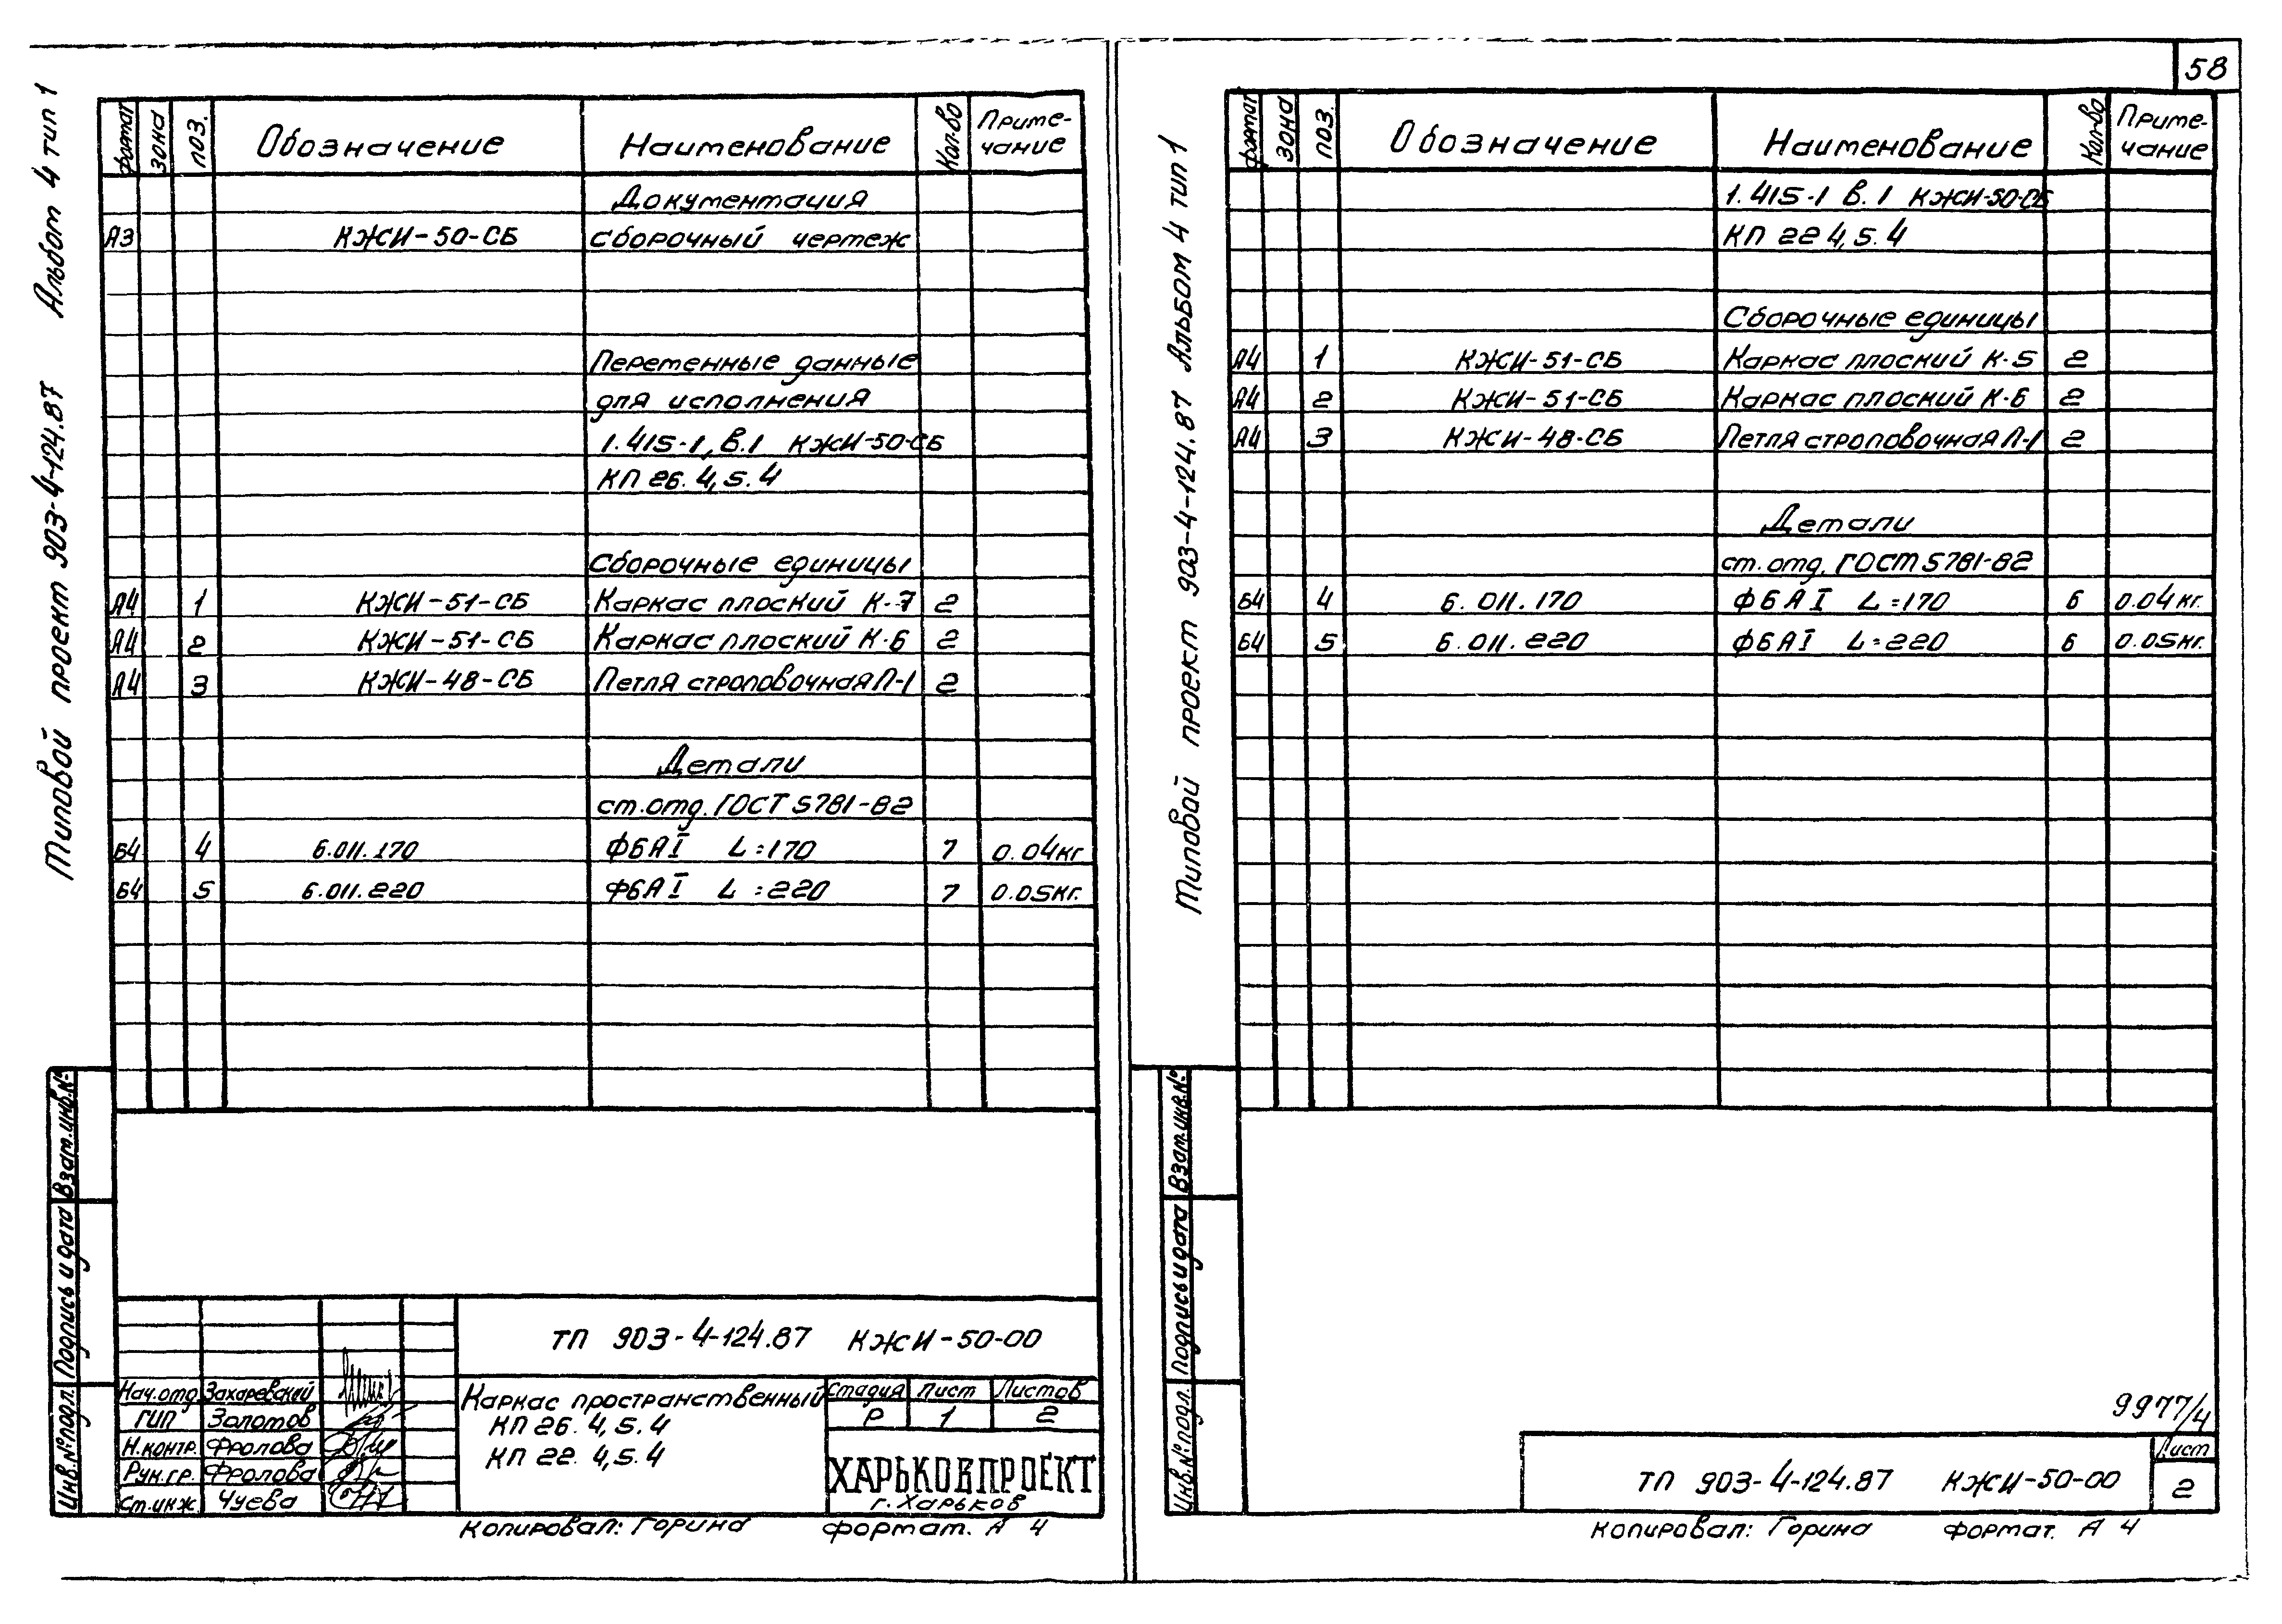 58
Типовой проект 903-4-124.87 Альбом 4 тип 1
формат зона поз. Обозначение Наименование Кол-во Приме-
чание
Документация
А3 КЖИ-50-СБ сборочный чертеж
Переменные данные
для исполнения
1.415-1, в.1 КЖИ-50-СБ
КП 26. 4,5. 4
Сборочные единицы
А4 1 КЖИ-51-СБ Каркас плоский К-7 2
А4 2 КЖИ-51-СБ Каркас плоский К-6 2
А4 3 КЖИ-48-СБ Петля строповочная П-1 2
Детали
ст.отд. ГОСТ 5781-82
Б4 4 6.011.170 Ф6АI L=170 7 0.04кг
Б4 5 6.011.220 Ф6АI L=220 7 0.05кг.
Взам.инв.№
Подпись и дата
Инв.№подл.
ТП 903-4-124.87 КЖИ-50-00
Нач.отд. Захаревский
ГИП Золотов
Н.контр. Фролова
Рук.гр. Фролова
Ст.инж. Чуева
Каркас пространственный
КП 26. 4,5. 4
КП 22. 4,5. 4
Стадия Лист Листов
Р 1 2
ХАРЬКОВПРОЕКТ
г. Харьков
Копировал: Горина формат. А 4
Типовой проект 903-4-124.87 Альбом 4 тип 1
формат зона поз. Обозначение Наименование Кол-во Приме-
чание
1.415-1 в.1 КЖИ-50-СБ
КП 22 4,5. 4
Сборочные единицы
А4 1 КЖИ-51-СБ Каркас плоский К-5 2
А4 2 КЖИ-51-СБ Каркас плоский К-6 2
А4 3 КЖИ-48-СБ Петля строповочная П-1 2
Детали
ст.отд. ГОСТ 5781-82
Б4 4 6.011.170 Ф6АI L=170 6 0.04кг.
Б4 5 6.011.220 Ф6АI L=220 6 0.05кг.
Взам.инв.№
Подпись и дата
Инв.№подл.
9977/4
ТП 903-4-124.87 КЖИ-50-00
Лист
2
Копировал: Горина формат. А 4